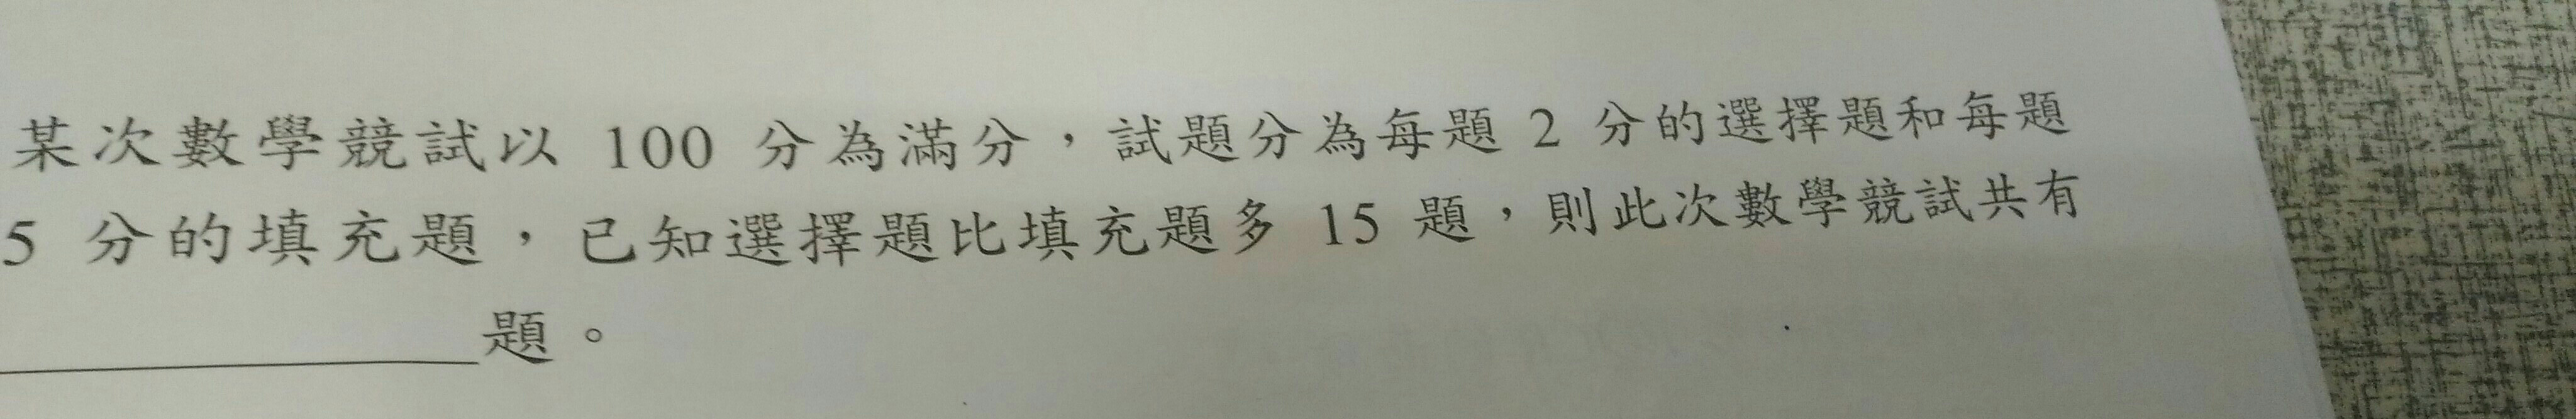 某次數學競試以 100 分為滿分，試題分為每題 2 分的選擇題和每題
5 分的填充題，已知選擇題比填充題多 15 題，則此次數學競試共有
＿＿＿＿＿＿題。